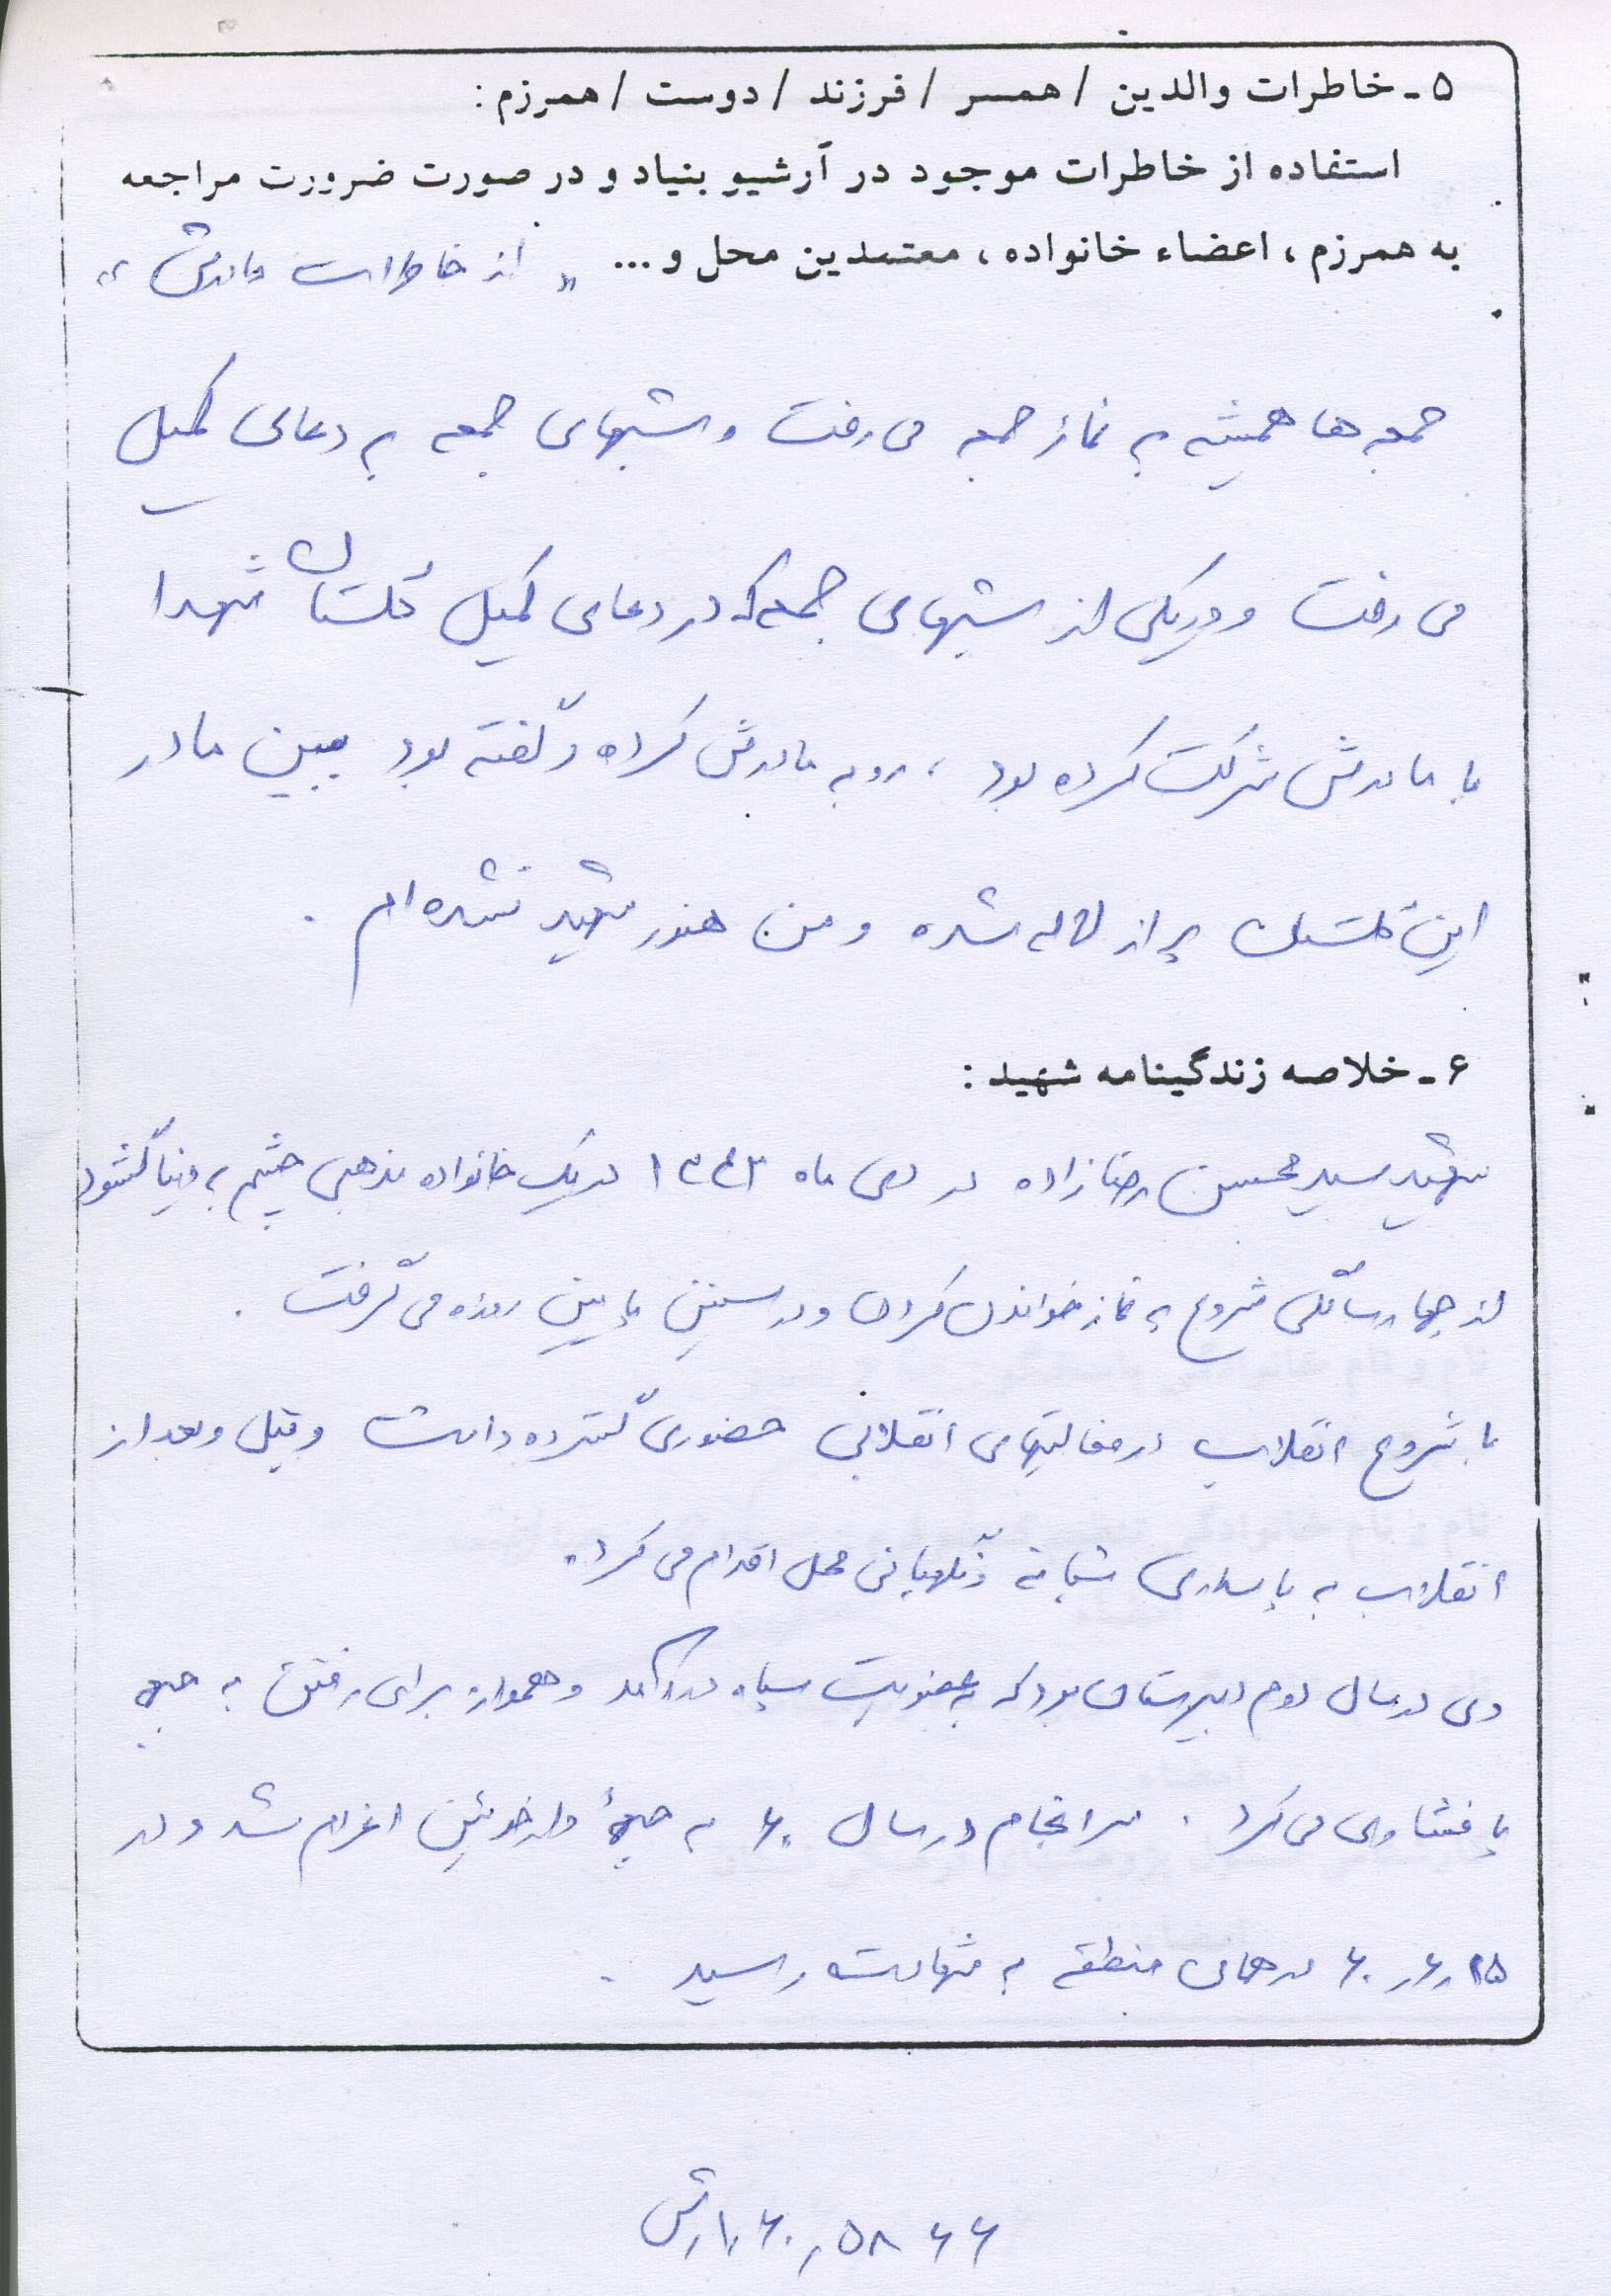 ۵ ـ خاطرات والدین / همسر / فرزند / دوست / همرزم :
استفاده از خاطرات موجود در آرشیو بنیاد و در صورت ضرورت مراجعه
به همرزم ، اعضاء خانواده ، معتمدین محل و ... « از خاطرات مادرش »
جمعه ها همیشه به نماز جمعه می رفت و شبهای جمعه به دعای کمیل
می رفت و در یکی از شبهای جمعه که در دعای کمیل گلستان شهدا
با مادرش شرکت کرده بود ، رو به مادرش کرده و گفته بود ببین مادر
این گلستان پر از لاله شده و من هنوز شهید نشده ام .
۶ ـ خلاصه زندگینامه شهید :
شهید سید محسن رضازاده در دی ماه ۱۳۴۳ در یک خانواده مذهبی چشم به دنیا گشود
از چهار سالگی شروع به نماز خواندن کردن و در سنین پایین روزه می گرفت .
با شروع انقلاب در فعالیتهای انقلابی حضوری گسترده داشت و قبل و بعد از
انقلاب به پاسداری شبانه و نگهبانی محل اقدام می کرد .
وی در سال دوم دبیرستان بود که به عضویت سپاه در آمد و همواره برای رفتن به جبهه
پافشاری می کرد . سرانجام در سال ۶۰ به جبههٔ دارخوئین اعزام شد و در
۱۵ر۶ر۶۰ در همان منطقه به شهادت رسید .